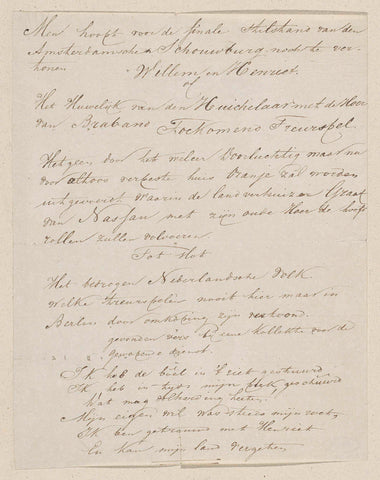 Men hoopt voor de finale Stilstans van den
Amsterdamschen Schouwburg noch te ver-
tonen
Willem en Henriet.
of
Het Huwelijk van den Huichelaar met de Hoer
van Braband Toekomend Treurspel.
Hetgeen door het weleer Doorluchtig maar nu
door althoos verpeste huis Oranje zal worden
uitgevoerd waarin de landverhuizer Graaf
van Nassau met zijn oude Hoer de hooft
rollen zullen volvoeren
Tot Slot
Het bedrogen Nederlandsche Volk
welke treurspellen nooit hier maar in
Berlin door omkoping zijn vertoond.
gevonden vers bij eene kollekte voor de
gewapende dienst.
Ik heb de boel in 't riet gestuurd
Ik heb in tyds mijn geschuurd
Wat mag scheiding heeten
Mijn eigen wil was steeds mijn wet
Ik ben getrouwd met Henriet
En kan mijn land vergeten